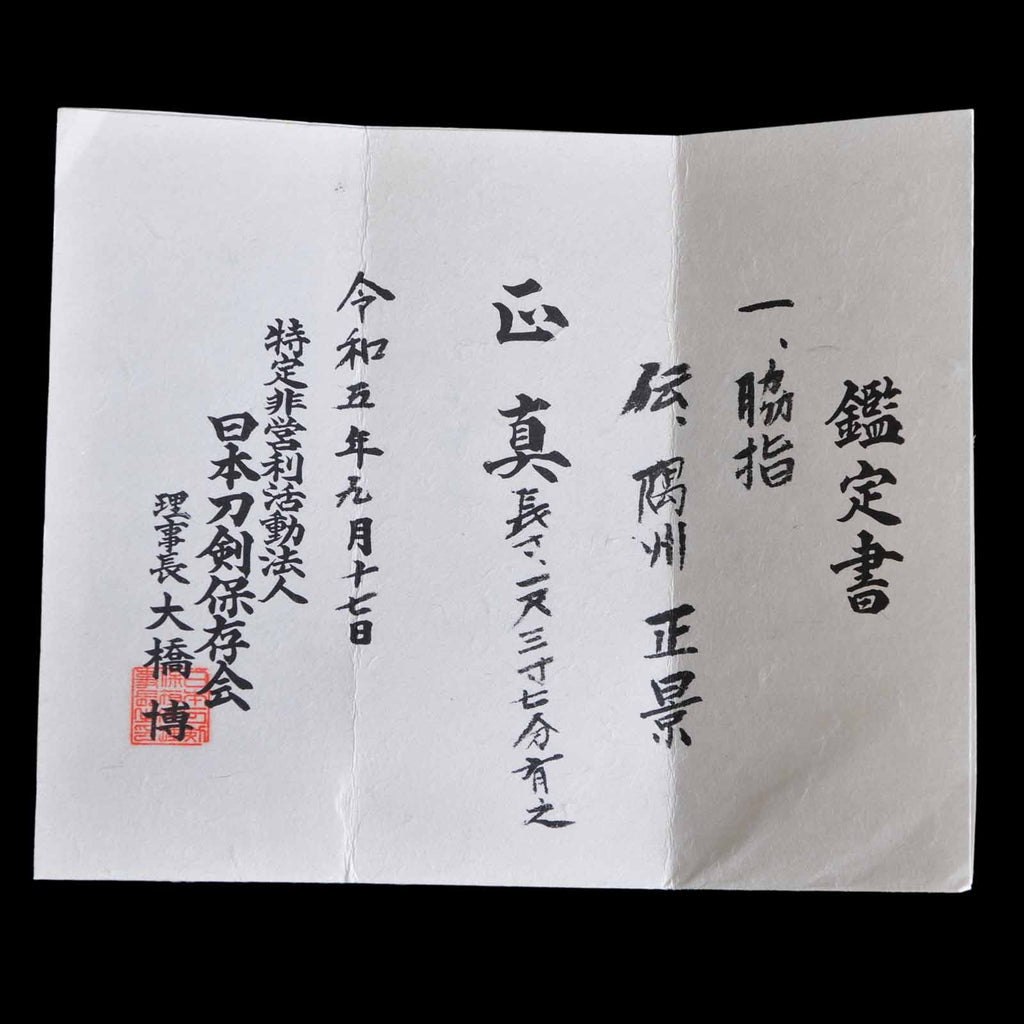 鑑定書
一、脇指
伝、隅州 正景
正真 長さ、一尺三寸七分有之
令和五年九月十七日
特定非営利活動法人
日本刀剣保存会
理事長 大橋 博